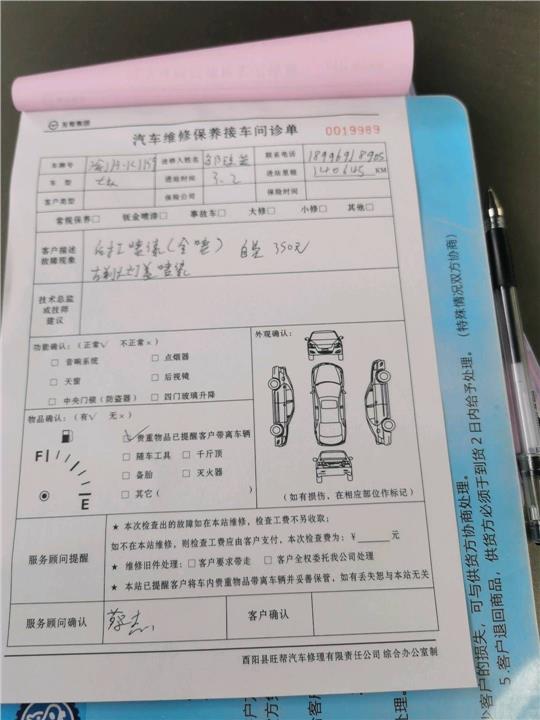 汽车维修保养接车问诊单
0019989
车牌号
进修人姓名
联系电话 18996918905
车型
进站时间 3.2
进站里程 140645 KM
客户类型
保险公司
保险时间
常规保养□ 钣金喷漆□ 事故车□ 大修□ 小修□ 其他□
客户描述
故障现象
后杠喷漆(全喷) 350元
技术总监
或技师
建议
功能确认:(正常√ 不正常×)
□ 音响系统 □ 点烟器
□ 天窗 □ 后视镜
□ 中央门锁(防盗器) □ 四门玻璃升降
物品确认:(有√ 无×)
□ 贵重物品已提醒客户带离车辆
□ 随车工具 □ 千斤顶
□ 备胎 □ 灭火器
□ 其它( )
F
E
外观确认:
(如有损伤,在相应部位作标记)
服务顾问提醒
★ 本次检查出的故障如在本站维修,检查工费不另收取;
如不在本站维修,则检查工费应由客户支付,本次检查费为:¥______元
★ 维修旧件处理:□ 客户要求带走 □ 客户全权委托我公司处理
★ 本站已提醒客户将车内贵重物品带离车辆并妥善保管,如有丢失恕与本站无关
服务顾问确认
客户确认
酉阳县旺帮汽车修理有限责任公司 综合办公室制
(特殊情况双方协商)
客户的损失,可与供货方协商处理。
5.客户退回商品,供货方必须于到货2日内给予处理。